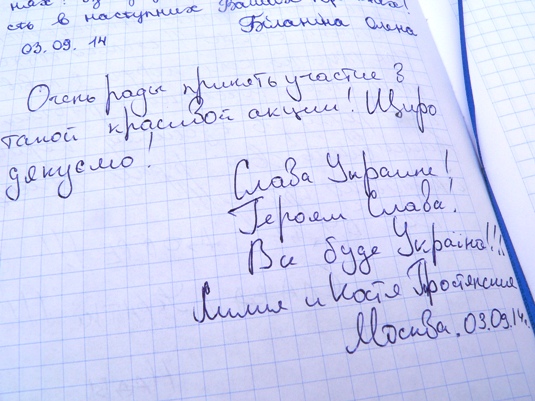 сть в наступних Ваших
Біланіна Олена
03.09.14
Очень рады принять участие в
такой красивой акции! Щиро
дякуємо!
Слава Украине!
Героям Слава!
Все буде Україна!!!
Лилия и Костя
Москва. 03.09.14.